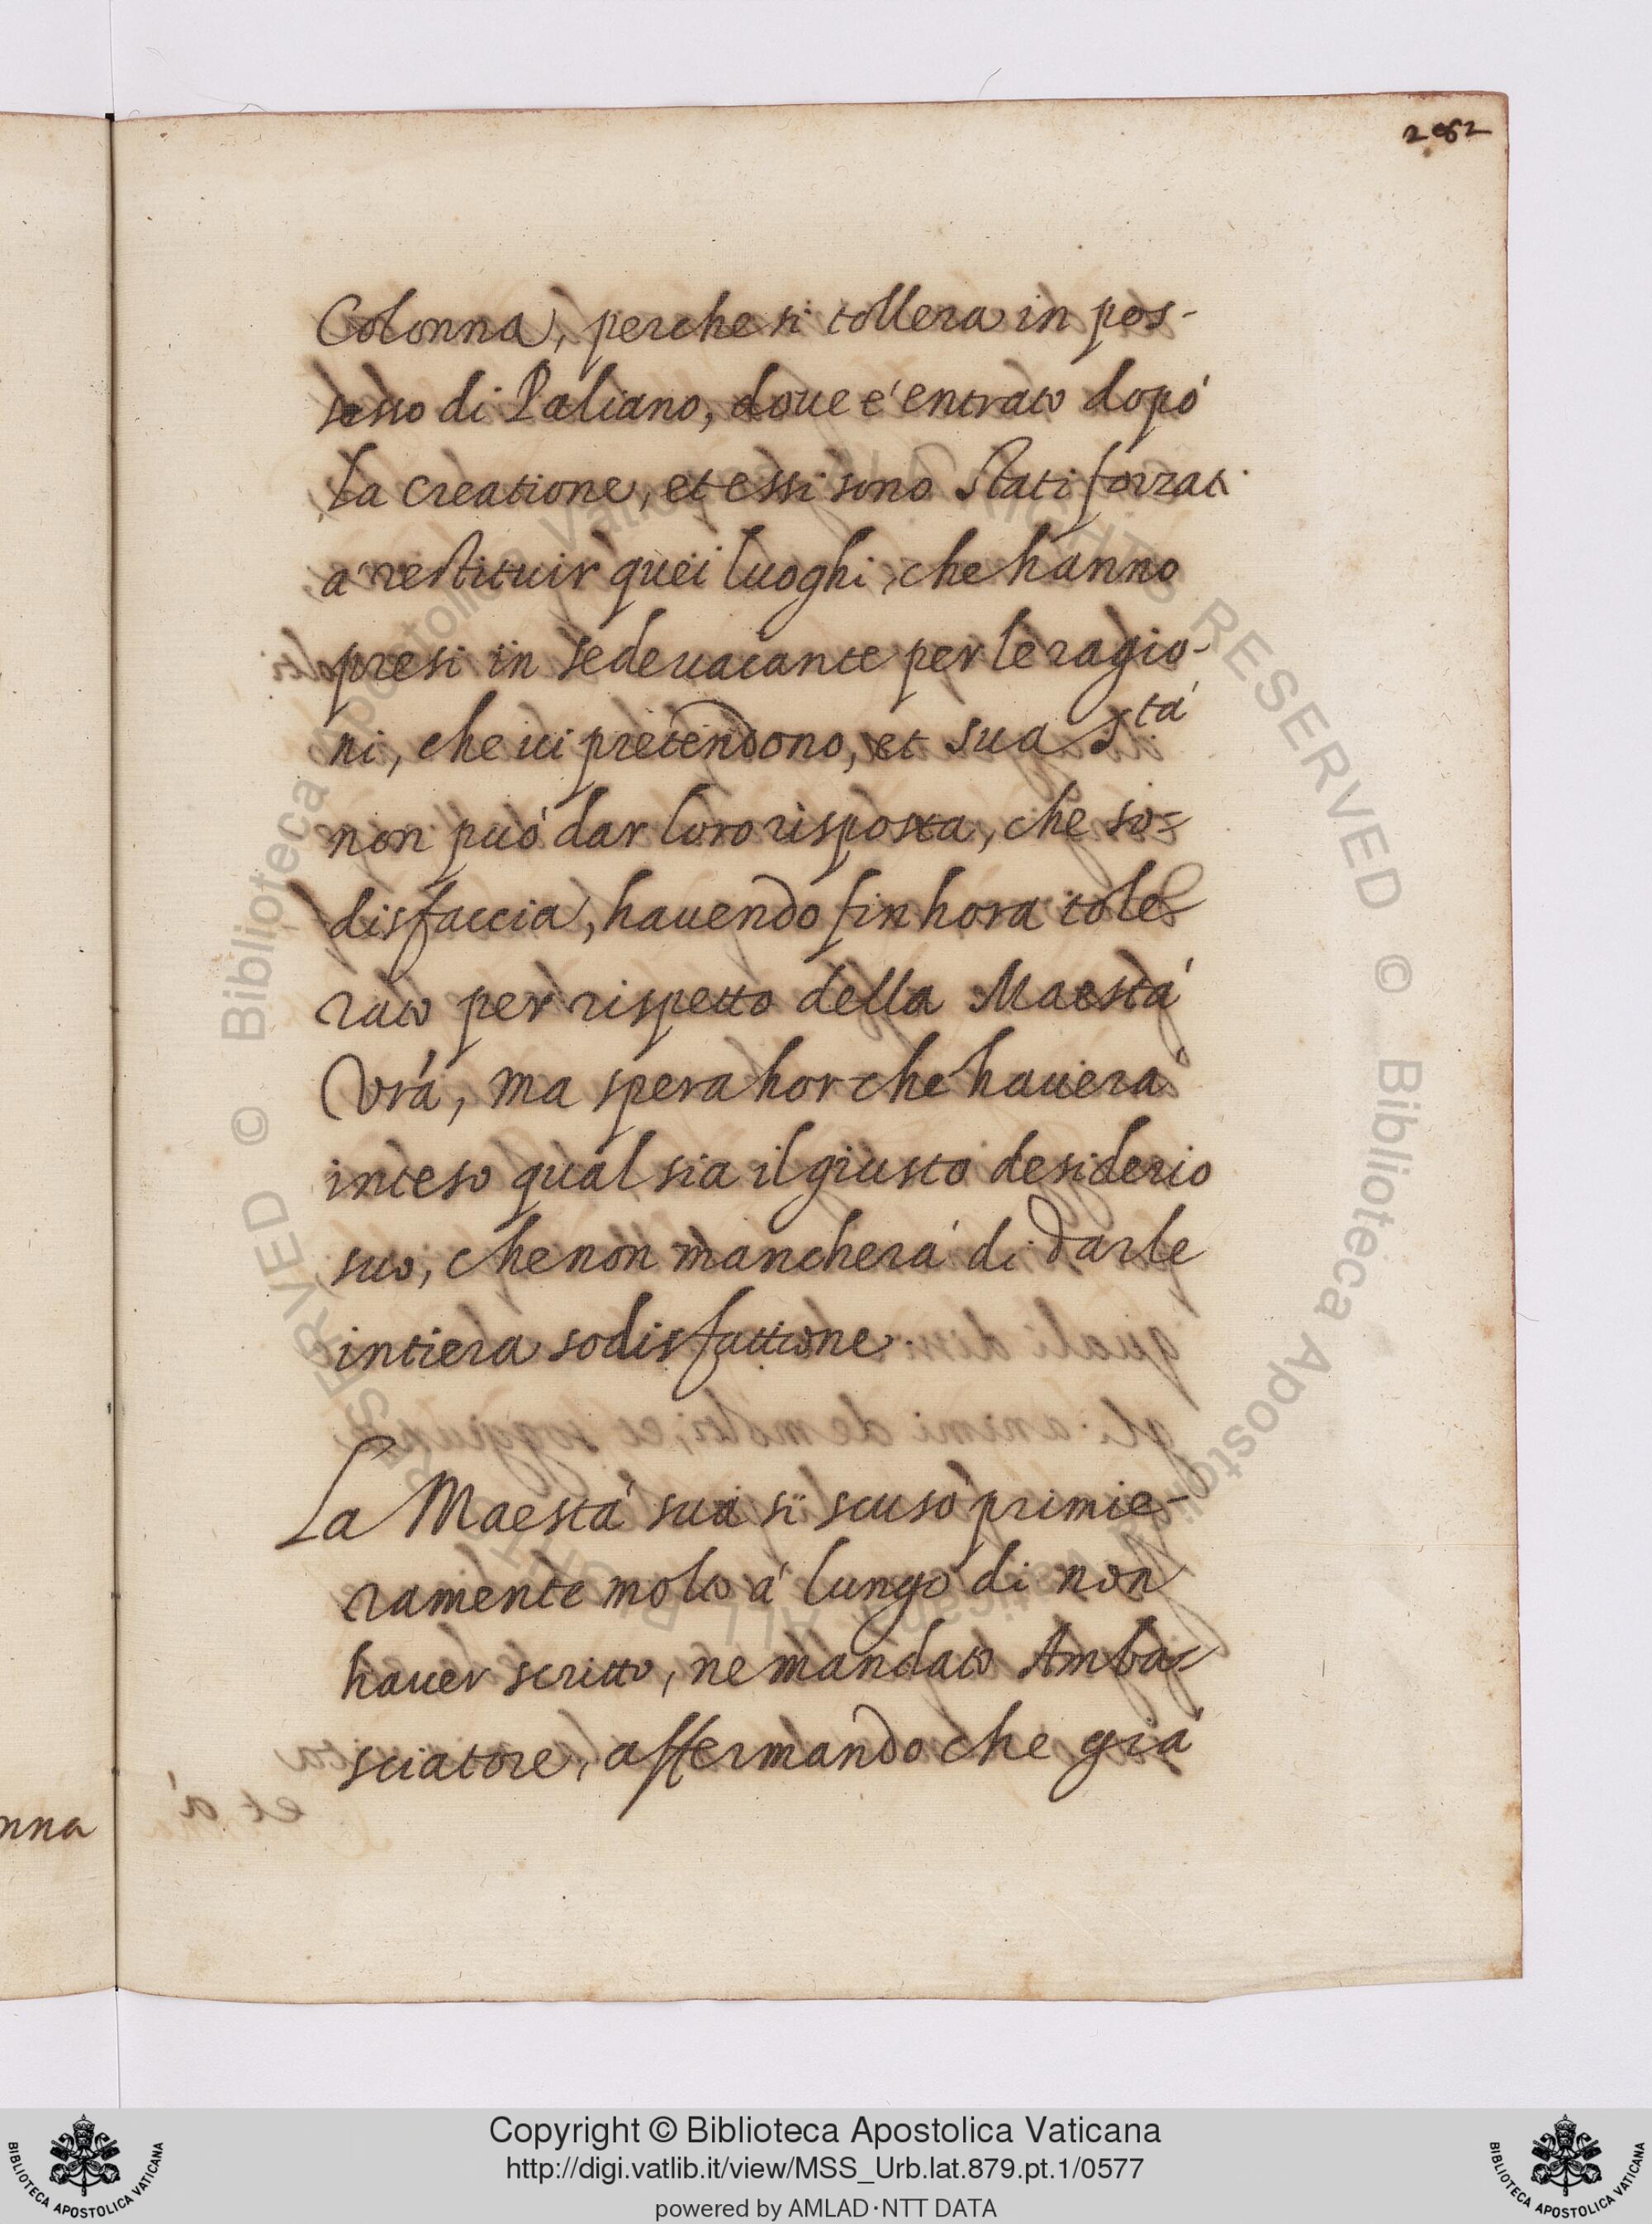 282
Colonna, perche si tollera in pos-
sesso di Paliano, doue é entrato dopó
la creatione, et essi sono stati forzati
á restituir quei luoghi, che hanno
presi in sede uacante per le ragio-
ni, che ui pretendono, et sua S.tá
non puó dar loro risposta, che so-
disfaccia, hauendo fin hora tole-
rato per rispetto della Maestá
Vrá, ma spera hor che hauerá
inteso qual sia il giusto desiderio
suo, che non mancherá di darle
intiera sodisfattione.
La Maestá sua si scusò primie-
ramente molto á lungo di non
hauer scritto, ne mandato Amba-
sciatore, affermando che giá
nna
et á
© Biblioteca Apostolica Vaticana ALL RIGHTS RESERVED © Biblioteca Apostolica Vaticana ALL RIGHTS RESERVED
Copyright © Biblioteca Apostolica Vaticana
http://digi.vatlib.it/view/MSS_Urb.lat.879.pt.1/0577
powered by AMLAD·NTT DATA
BIBLIOTECA APOSTOLICA VATICANA
BIBLIOTECA APOSTOLICA VATICANA